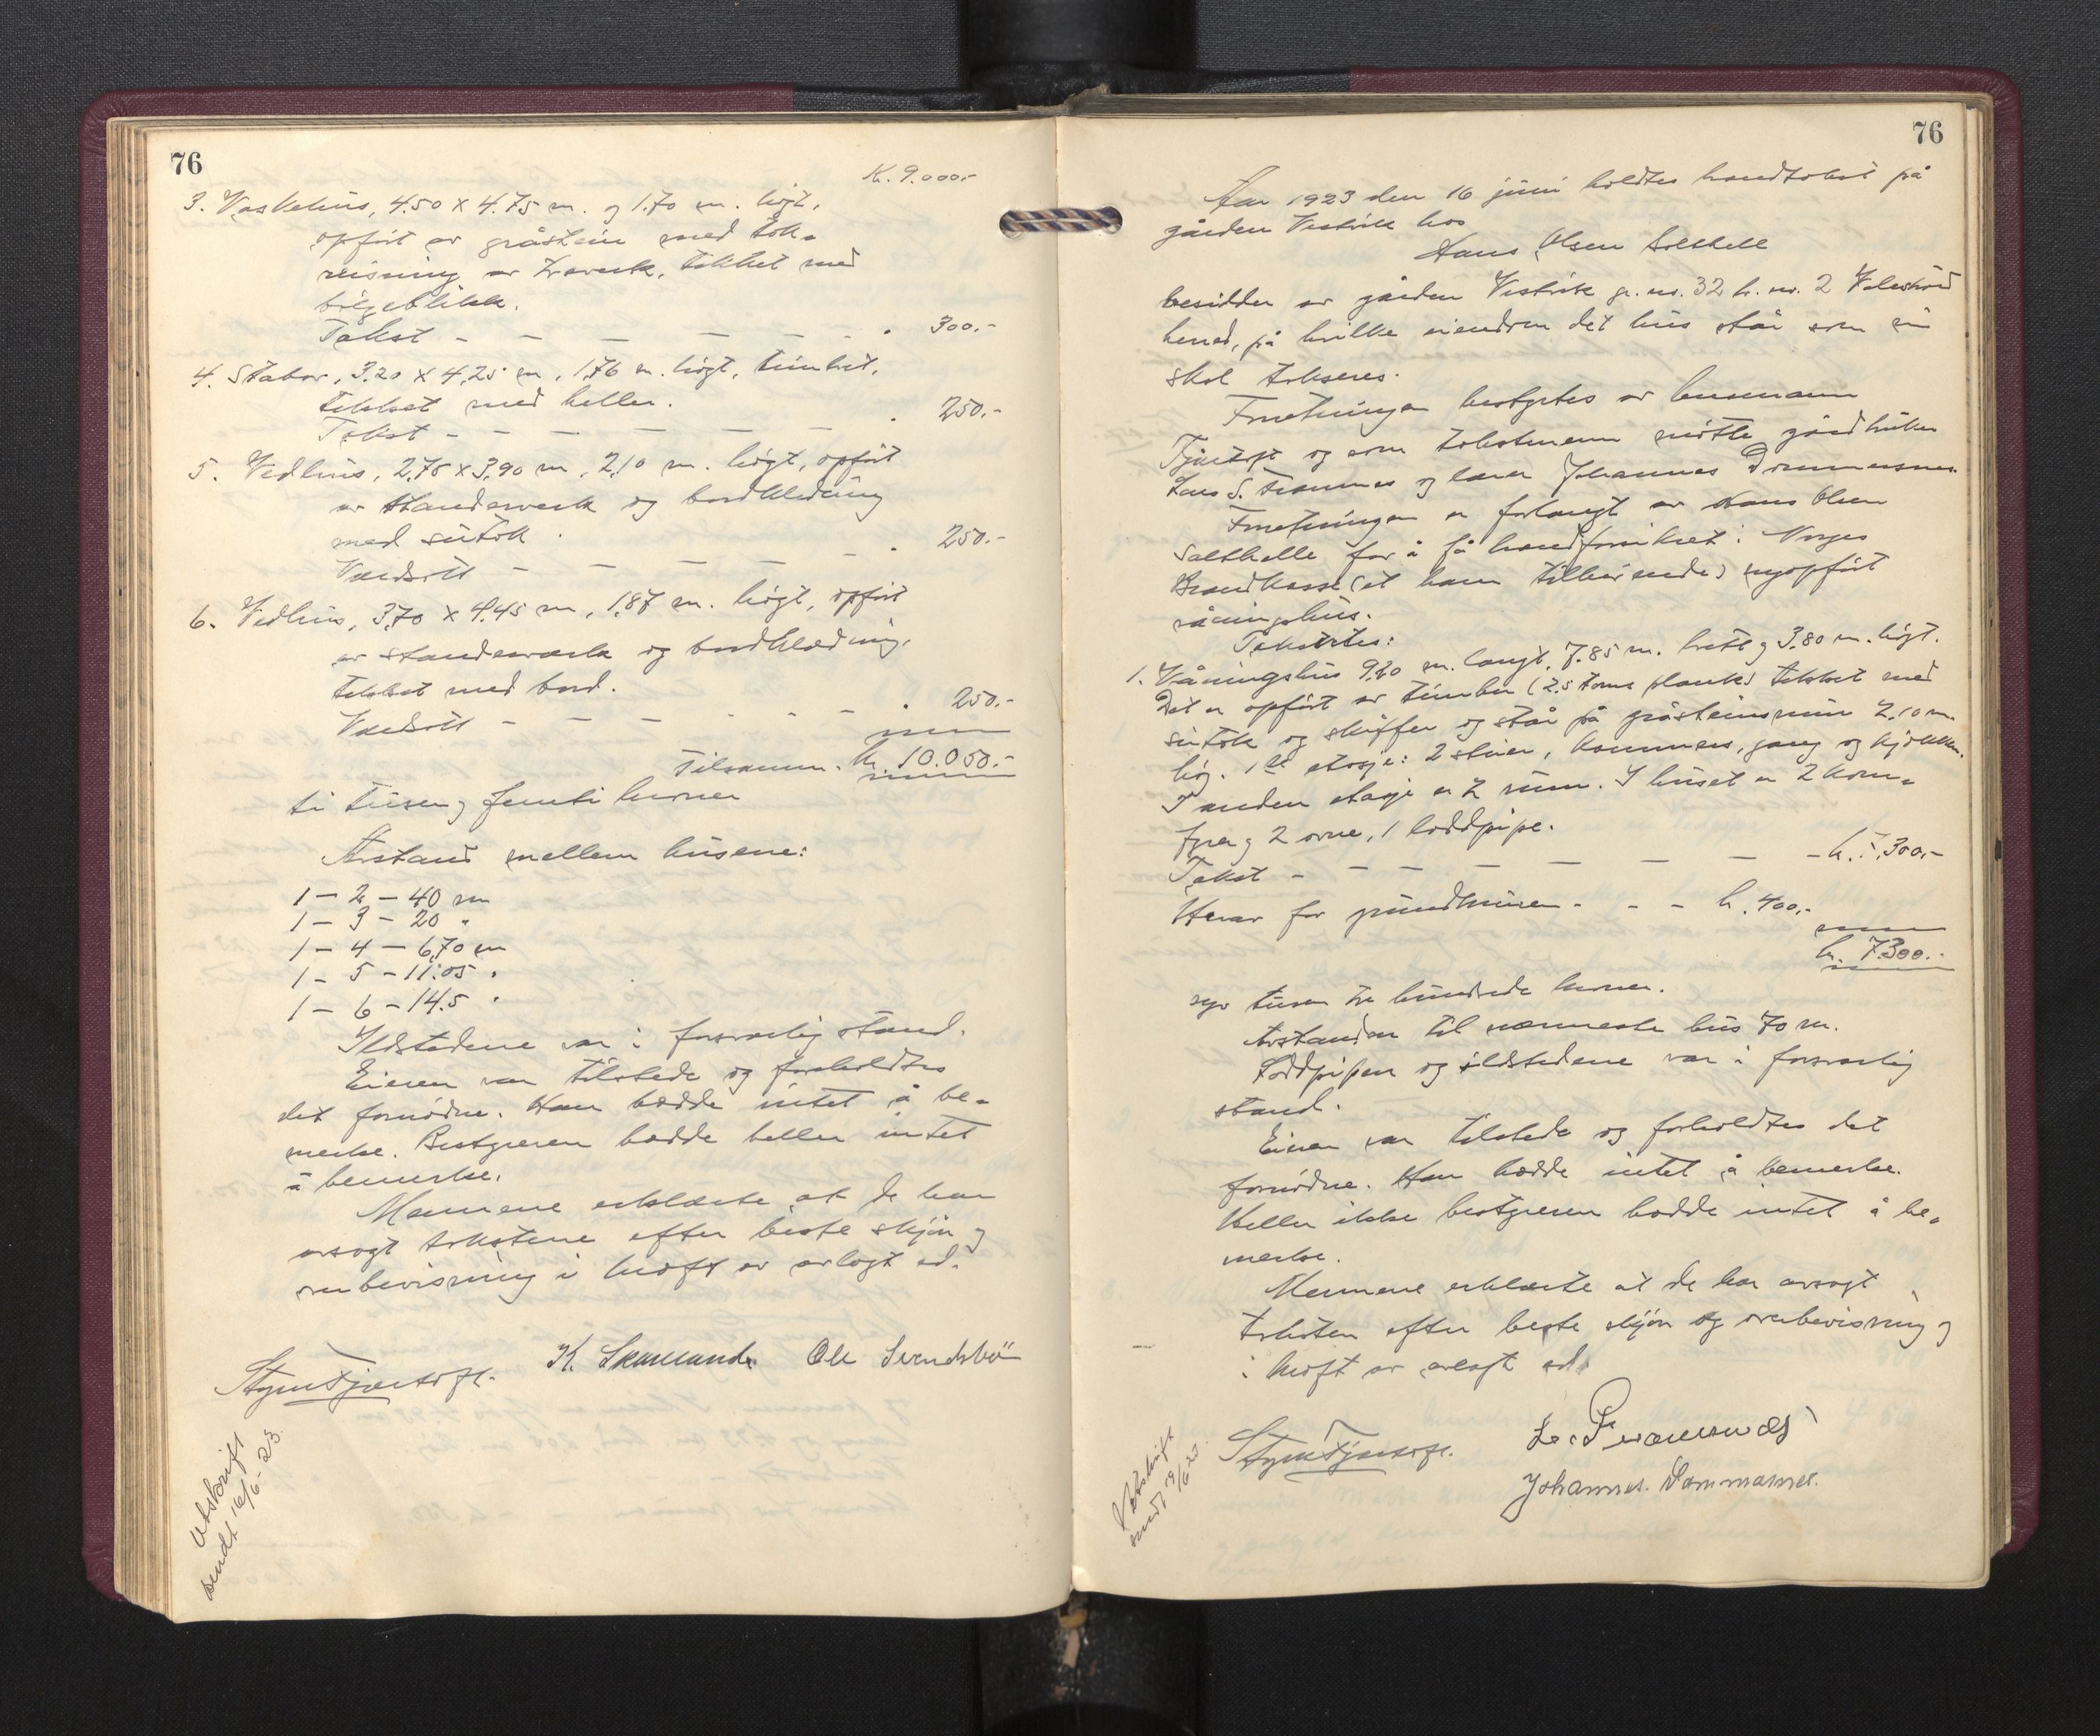 76
Kr. 9.000.-
3. Vaskehus, 4.50 x 4.75 m. og 1.70 m. högt,
opfört av gråstein med tak-
reisning av treverk, tekket med
bölgeblikk.
Takst - - - - - - - " 300.-
4. Stabur, 3.20 x 4.25 m, 1.76 m. högt, timbret,
tekket med heller.
Takst - - - - - - " 250.-
5. Vedhus, 2.75 x 3.90 m, 2.10 m. högt, opfört
av standerverk og bordklædning
med sutak.
Verdsatt - - - - - " 250.-
6. Vedhus, 3.70 x 4.45 m, 1.87 m. högt, opfört
av standerværk og bordklædning,
tekket med bord.
Verdsatt - - - - - - " 250.-
Tilsamm. kr. 10.050.-
ti tusen og femti kroner
Avstand mellem husene:
1 - 2 - 40 m
1 - 3 - 20 "
1 - 4 - 6.70 m
1 - 5 - 11.05 "
1 - 6 - 14.5 "
Ildstedene var i forsvarlig stand.
Eieren var tilstede og foreholdtes
det fornödne. Han hadde intet å be-
merke. Bestyreren hadde heller intet
å bemerke.
Mennene erklærte at de har
avsagt takstene efter beste skjön og
overbevisning i kraft av avlagt ed.
Styrk Fjærtoft. K. Skarsande Ole Svendsbö
Utskrift
sendt 16/6-23.
76
Aar 1923 den 16 juni holdtes brandtakst på
gården Vestvik hos
Hans Olsen Solthell
besidder av gården Vestvik gr. nr. 32 br. nr. 2
herred, på hvilke eiendom det hus står som nu
skal takseres.
Forretningen bestyrtes av lensmann
Fjærtoft og som takstmenn møtte gårdbruker
Lars S. Tranenes og lærer Johannes Drommesnes.
Forretningen er forlangt av Hans Olsen
Solthelle for å få brandforsikret i Norges
Brandkasse (et ham tilhørende) nyopfört
våningshus.
Takstertes:
1. Våningshus 9.20 m. langt, 7.85 m. brett og 3.80 m. högt.
Det er opfört av timber (2.5 toms plank) tekket med
sutak og skiffer og står på gråsteinsmur 2.10 m.
høg. 1ste etasje: 2 stuer, kammers, gang og kjøkken.
I anden etasje er 2 rum. I huset er 2 kom-
fyrer og 2 ovne, 1 loddpipe.
Takst - - - - - - - kr. 7.300.-
Herav for grundmuren - - - kr. 400.-
kr. 7.300.-
syv tusen tre hundrede kroner.
Avstanden til nærmeste hus 70 m.
Loddpipen og ildstedene var i forsvarlig
stand.
Eieren var tilstede og forholdtes det
fornødne. Han hadde intet å bemerke.
Heller ikke bestyreren hadde intet å be-
merke.
Mennene erklærte at de har avsagt
taksten efter beste skjön og overbevisning og
i kraft av avlagt ed.
Styrk Fjærtoft.
Johannes Dommasnes.
Utskrift
sendt 19/6 23.